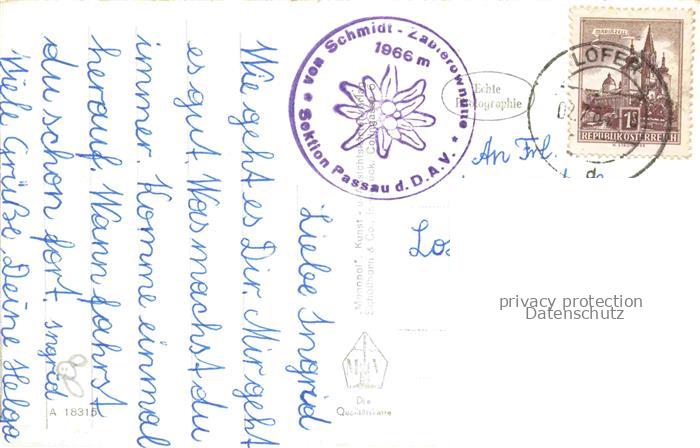 Liebe Ingrid
Wie geht es Dir. Mir geht
es gut. Was machst du
immer. Komme einmal
herauf. Wann fährst
du schon fort. Ingrid
Viele Grüße Deine Helga
von Schmidt - Zabierowhütte
1966 m
Sektion Passau d. D.A.V.
Echte
Photographie
MARIAZELL
1S
REPUBLIK ÖSTERREICH
LOFER
An Frl.
Lo
"Monopol" Kunst - u.
Schöllhorn & Co., Innsbruck,
Die
Qualitätskarte
A 18315
privacy protection
Datenschutz